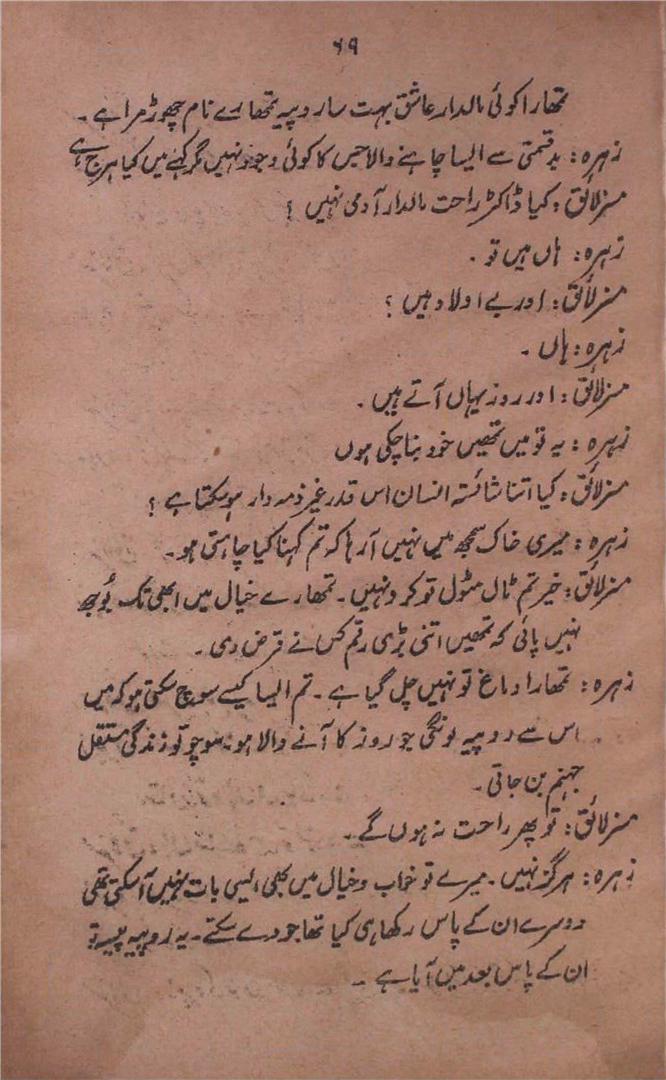 ۶۹
تمھارا کوئی مالدار عاشق بہت سا روپیہ تمھارے نام چھوڑ مرا ہے۔
زہرہ: بدقمتی سے ایسا چاہنے والا جیس کا کوئی وجود نہیں مگر کہنے میں کیا ہرج ہے
مسز لائق: کیا ڈاکٹر راحت مالدار آدمی نہیں؟
زہرہ: ہاں ہیں تو۔
مسز لائق: اور بے اولاد ہیں؟
زہرہ: ہاں۔
مسز لائق: اور روز یہاں آتے ہیں۔
زہرہ: یہ تو میں تمھیں خود بتا چکی ہوں
مسز لائق: کیا اتنا شائستہ انسان اس قدر غیر ذمہ دار ہو سکتا ہے؟
زہرہ: میری خاک سمجھ میں نہیں آ رہا کہ تم کہنا کیا چاہتی ہو۔
مسز لائق: خیر تم ٹال مٹول تو کرو نہیں۔ تمھارے خیال میں ابھی تک بُوجھ
نہیں پائی کہ تمھیں اتنی بڑی رقم کس نے قرض دی۔
زہرہ: تمھارا دماغ تو نہیں چل گیا ہے۔ تم ایسا کیسے سوچ سکتی ہو کہ میں
اس سے روپیہ لونگی جو روز کا آنے والا ہو۔ سوچو تو زندگی مستقل
جہنم بن جاتی۔
مسز لائق: تو پھر راحت نہ ہوں گے۔
زہرہ: ہرگز نہیں۔ میرے تو خواب و خیال میں بھی ایسی بات نہیں آ سکتی تھی
دوسرے ان کے پاس رکھا ہی کیا تھا جو دے سکتے۔ یہ روپیہ پیسہ تو
ان کے پاس بعد میں آیا ہے۔